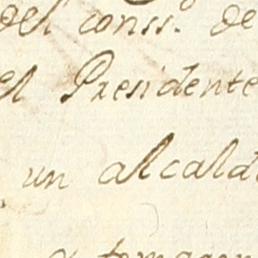 del conss.º de
el Presidente
un alcald